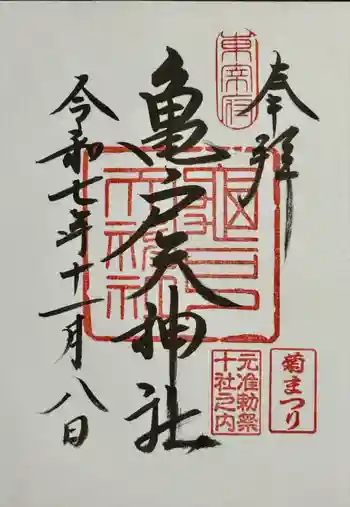 奉拝
東帝府
亀戸天神社
亀戸天神社
菊まつり
元准勅祭
十社之内
令和七年十一月八日